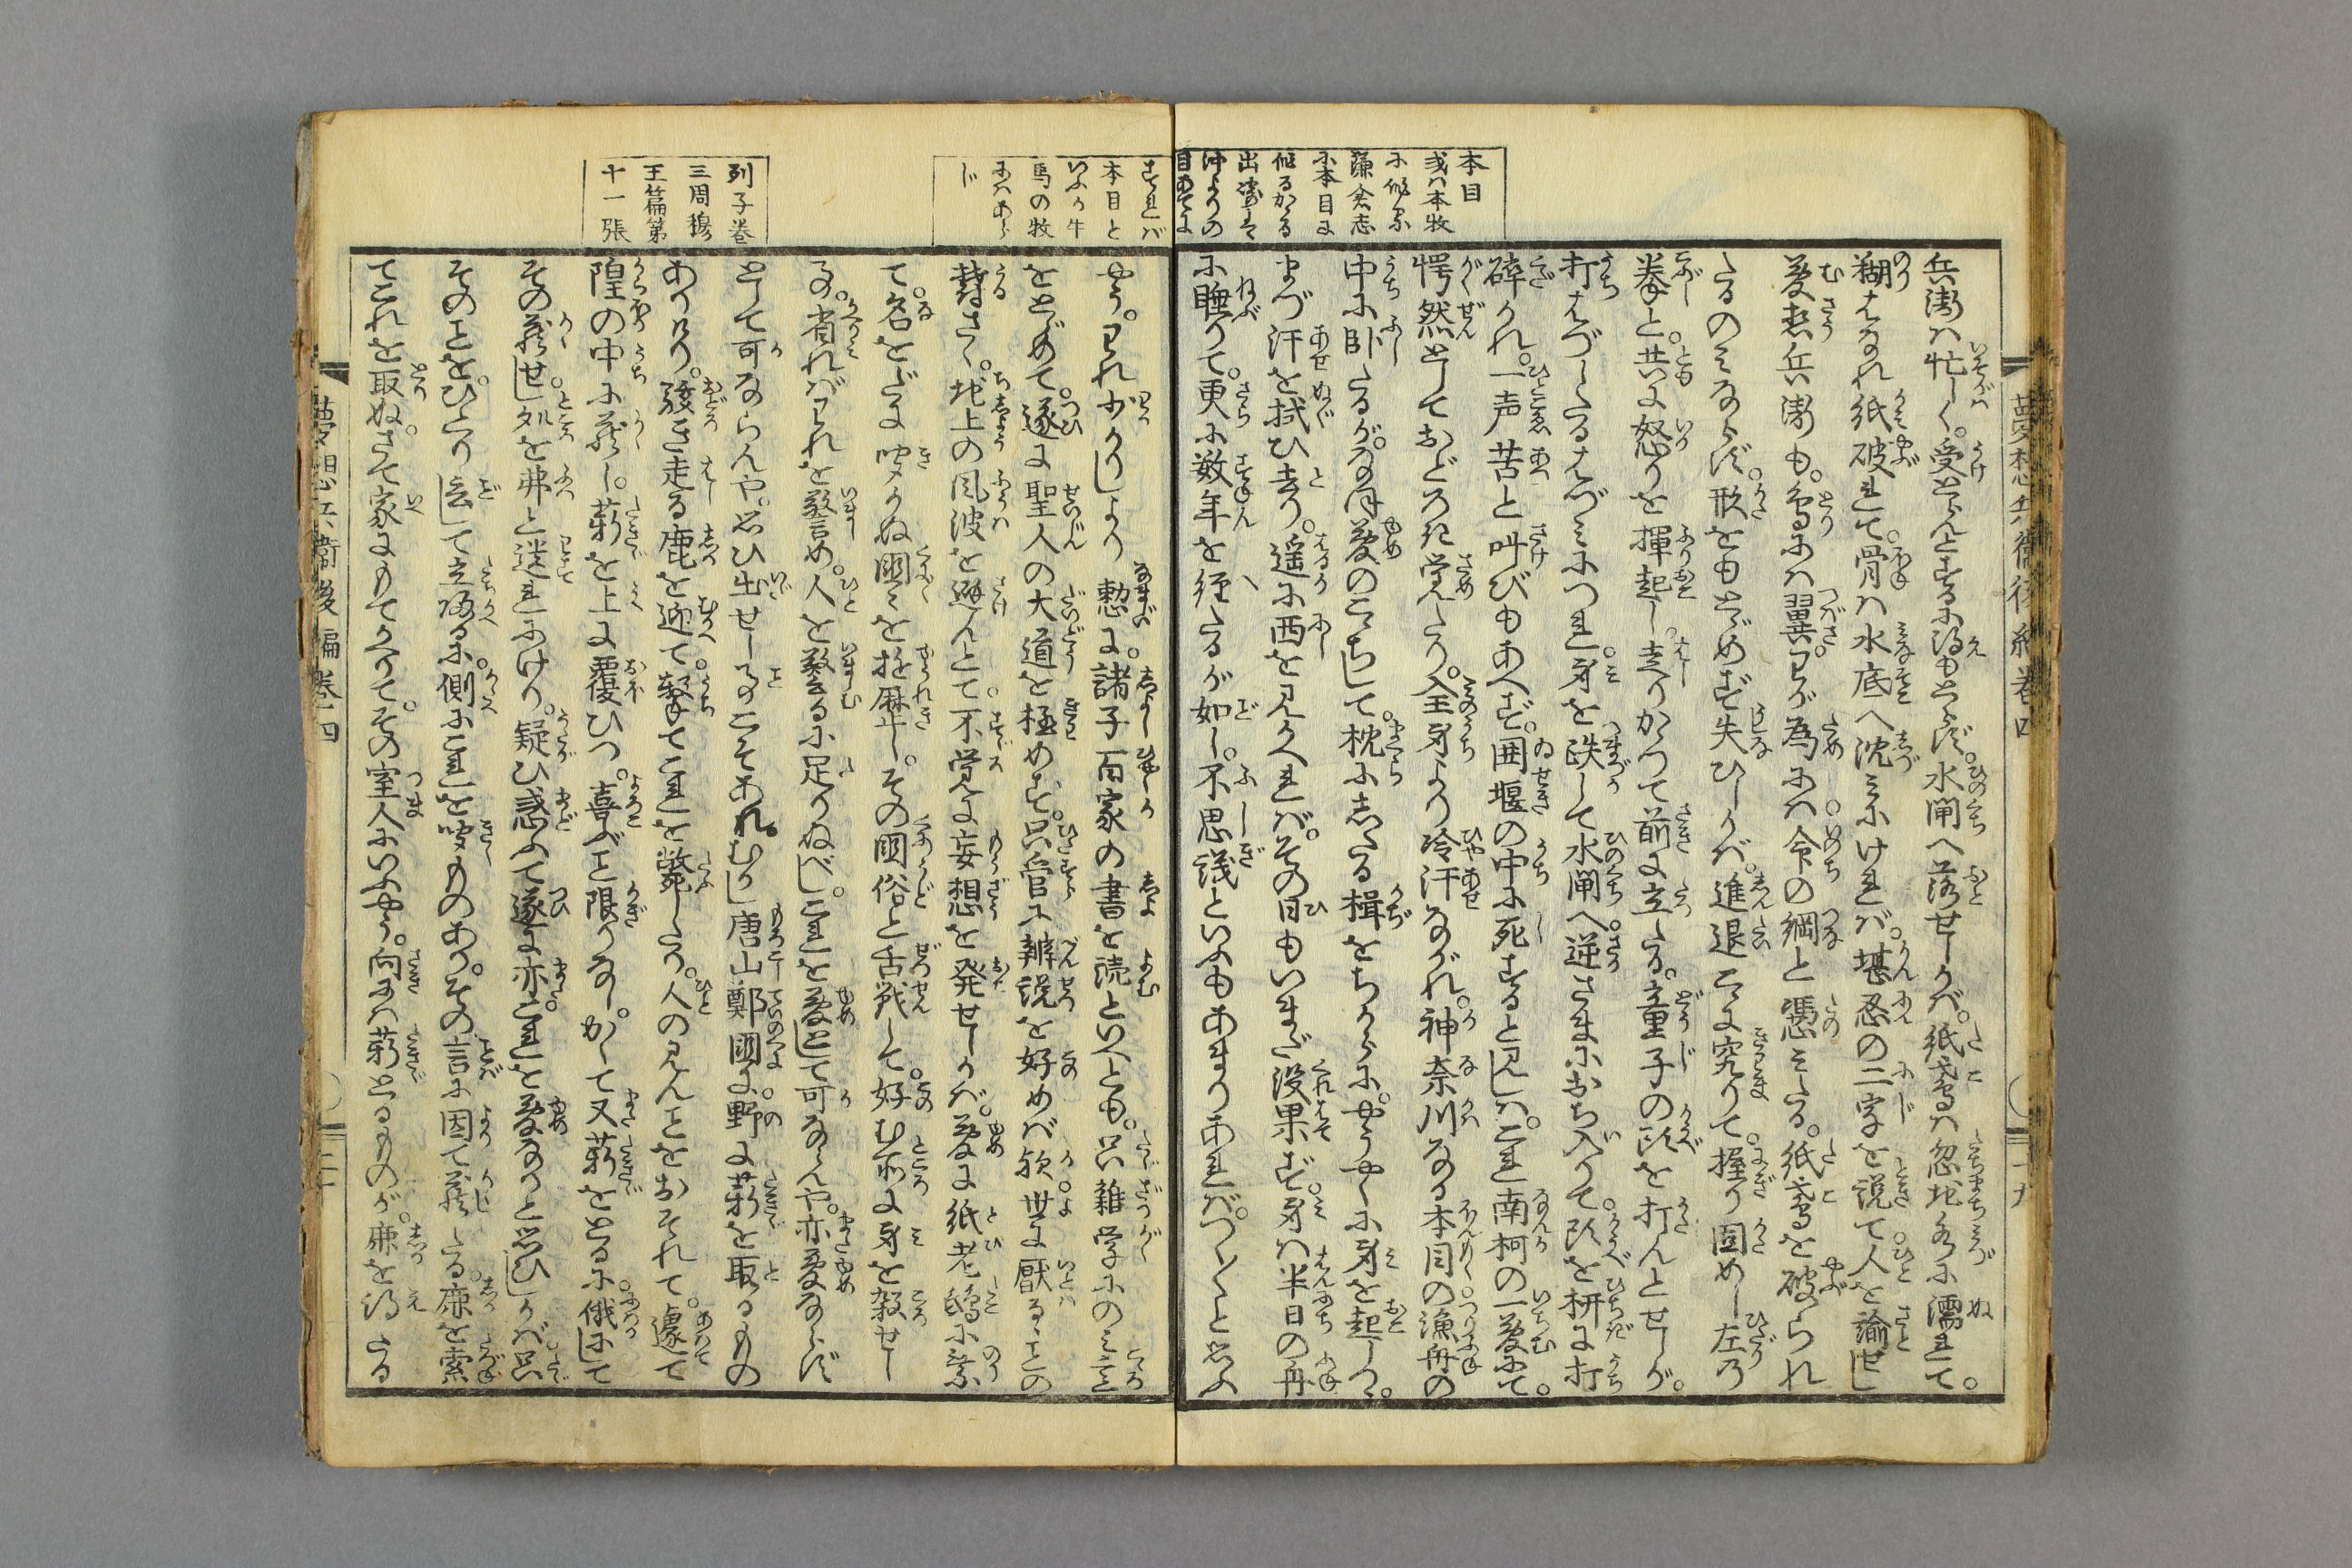 本目
或ハ本牧
に作る
鎌倉志
に本目に
作るかる
兵衛は忙しく。受とらんとするに得もとらず。水閘へ落せしかば。紙鳶は忽地水に濡れて。
糊はなれ紙破れて。骨は水底へ沈みにければ。堪忍の二字を説て人を諭せし
夢想兵衛も。鳥には翼。わが為には命の綱と憑みたる。紙鳶を破られ
たるのみならず。形をもとゞめず失ひしかば。進退こゝに究りて。握り固めし左の
拳と。共に怒りを揮起し。走りかゝつて前に立たる。童子の頭を打んとせしが。
打はづしたるはづみにつれ。身を跌して水閘へ。逆さまにおち入りて。頭を枅に打
碎かれ。一声苦と叫びもあへず。囲堰の中に死すると見しは。これ南柯の一夢にて。
愕然としておどろき覚たり。全身より冷汗ながれ。神奈川なる本目の漁舟の
中に臥たるが。なほ夢のこゝちして。枕にしたる楫をちからに。やうやくに身を起しつ。
まづ汗を拭ひ去り。遥に西を見かへれば。その日もいまだ没果ず。身は半日の舟
に睡りて。更に数年を経たるが如し。不思議といふもあまりあれば。つく〲と思ふ
すれば
本目と
いふは牛
馬の牧
にはあら
じ
やう。われ少かりしより憖に。諸子百家の書を読といへども。只雑学にのみこゝろ
をとゞめて。遂に聖人の大道を極めず。只管に辨説を好めば欤。世に厭るゝことの
夥さく。地上の風波を避んとて。不覚に妄想を発せしかば。夢に紙老鴟に乗
て。名をだに聞かぬ國々を抂歴し。その國俗と舌戦して。好む所に身を殺せし
る。省ればわれを警め。人を警るに足りぬべし。これを夢として可ならんや。亦夢ならず
として可ならんや。思ひ出せし事こそあれ。むかし唐山鄭國に。野に薪を取るもの
ありけり。駭き走る鹿を迎て。撃てこれを斃したり。人の見んことをおそれて。遽て
隍の中に蔵し。薪を上に覆ひつ。喜ぶこと限りなし。かくて又薪をとるに。俄にして
その蔵せし処を弗と迷れにけり。疑ひ惑ふて遂に亦。これを夢なりと思ひしかば只
そのことを。ひとり言して立帰るに。側にこれを聞ものあり。その言に因て蔵したる。鹿を索
てこれを取ぬ。さて家にもてかへりて。その室人にいふやう。向には薪とるものが。鹿を得たる
列子巻
三周穆
王篇第
十一張
夢想兵衛後編巻四